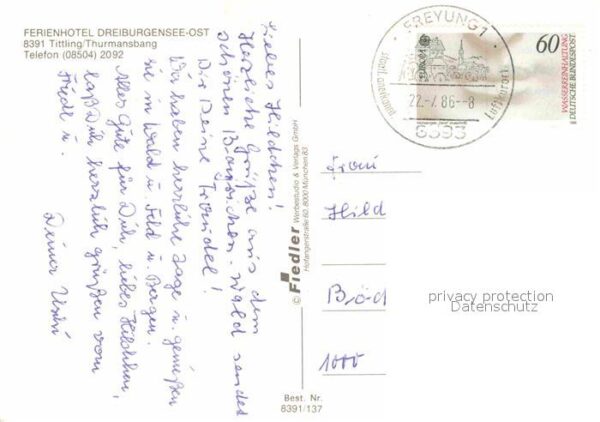 FERIENHOTEL DREIBURGENSEE-OST
8391 Tittling/Thurmansbang
Telefon (08504) 2092
Liebes Hildchen!
Herzliche Grüße aus dem
schönen Bayrischen-Wald sendet
Dir Deine Traudel!
Wir haben herrliche Tage u. genießen
sie in Wald u. Feld u. Bergen.
Alles Gute für Dich, liebes Hildchen,
laß Dich herzlich grüßen vom
Friedl u.
Deiner
© Fiedler Werbestudio & Verlags GmbH
8000 München 83
Best. Nr.
8391/137
FREYUNG 1
staatl. anerkannter
Luftkurort
EUROPA
22.-7.86-8
8393
60
WASSERREINHALTUNG
DEUTSCHE BUNDESPOST
Frau
Hild
Böd
1000
privacy protection
Datenschutz